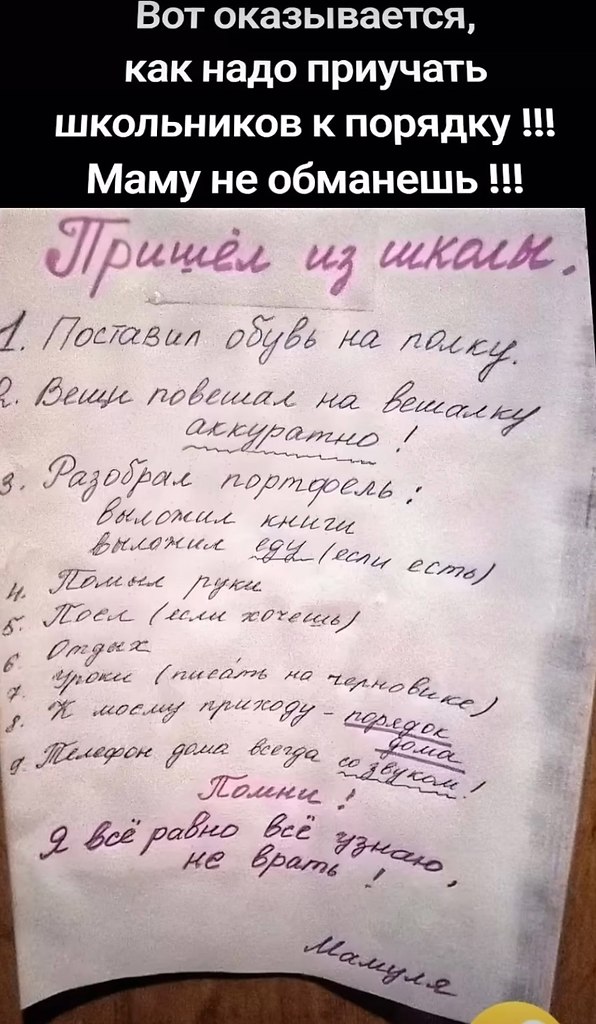 Вот оказывается,
как надо приучать
школьников к порядку !!!
Маму не обманешь !!!
Пришёл из школы.
1. Поставил обувь на полку.
2. Вещи повешал на вешалку
аккуратно !
3. Разобрал портфель :
выложил книги
выложил еду (если есть)
4. Помыл руки
5. Поел (если хочешь)
6 Отдых
7. Уроки (писать на черновике)
8. К моему приходу - порядок
дома
9. Телефон дома всегда со звуком !
Помни !
Я всё равно всё узнаю,
не врать !
Мамуля